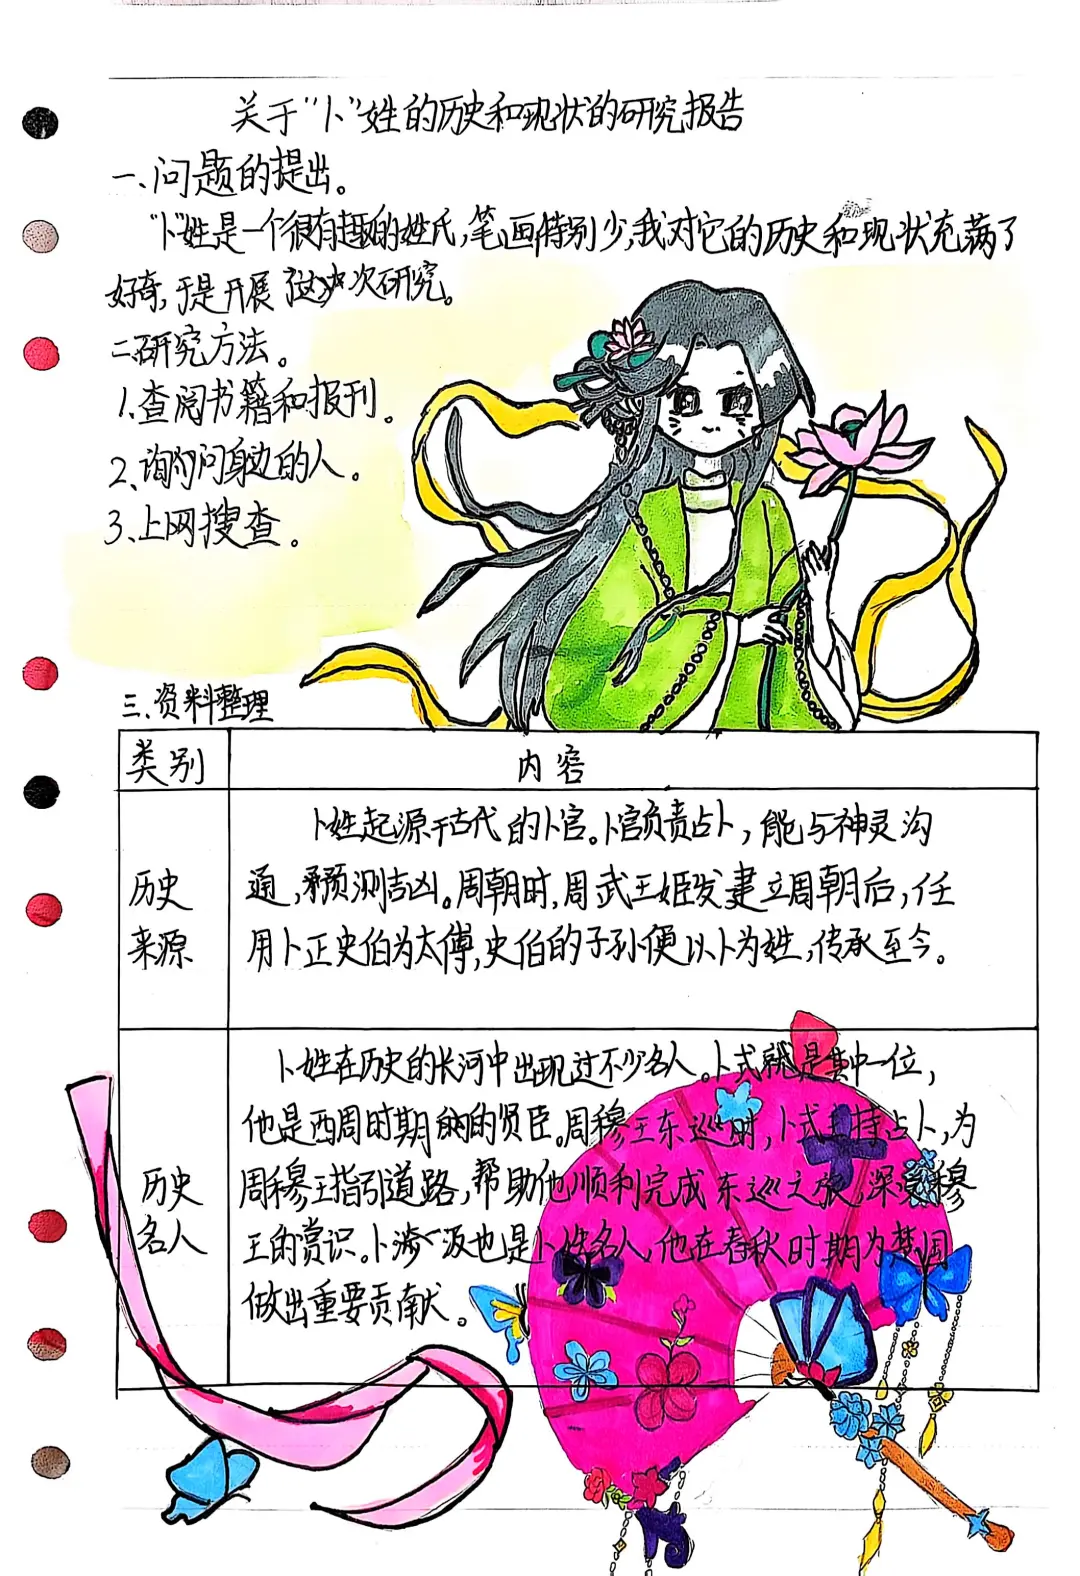 关于“卜”姓的历史和现状的研究报告
一、问题的提出。
“卜”姓是一个很有趣的姓氏,笔画特别少,我对它的历史和现状充满了
好奇,于是开展了这次研究。
二.研究方法。
1.查阅书籍和报刊。
2.询问身边的人。
3.上网搜查。
三.资料整理
类别 内容
历史来源
卜姓起源于古代的卜官。卜官负责占卜,能与神灵沟
通,预测吉凶。周朝时,周武王姬发建立周朝后,任
用卜正史伯为太傅,史伯的子孙便以卜为姓,传承至今。
历史名人
卜姓在历史的长河中出现过不少名人。卜式就是其中一位,
他是西周时期的贤臣。周穆王东巡时,卜式主持占卜,为
周穆王指引道路,帮助他顺利完成东巡之旅,深受穆
王的赏识。卜 也是卜姓名人,他在春秋时期为楚国
做出重要贡献。